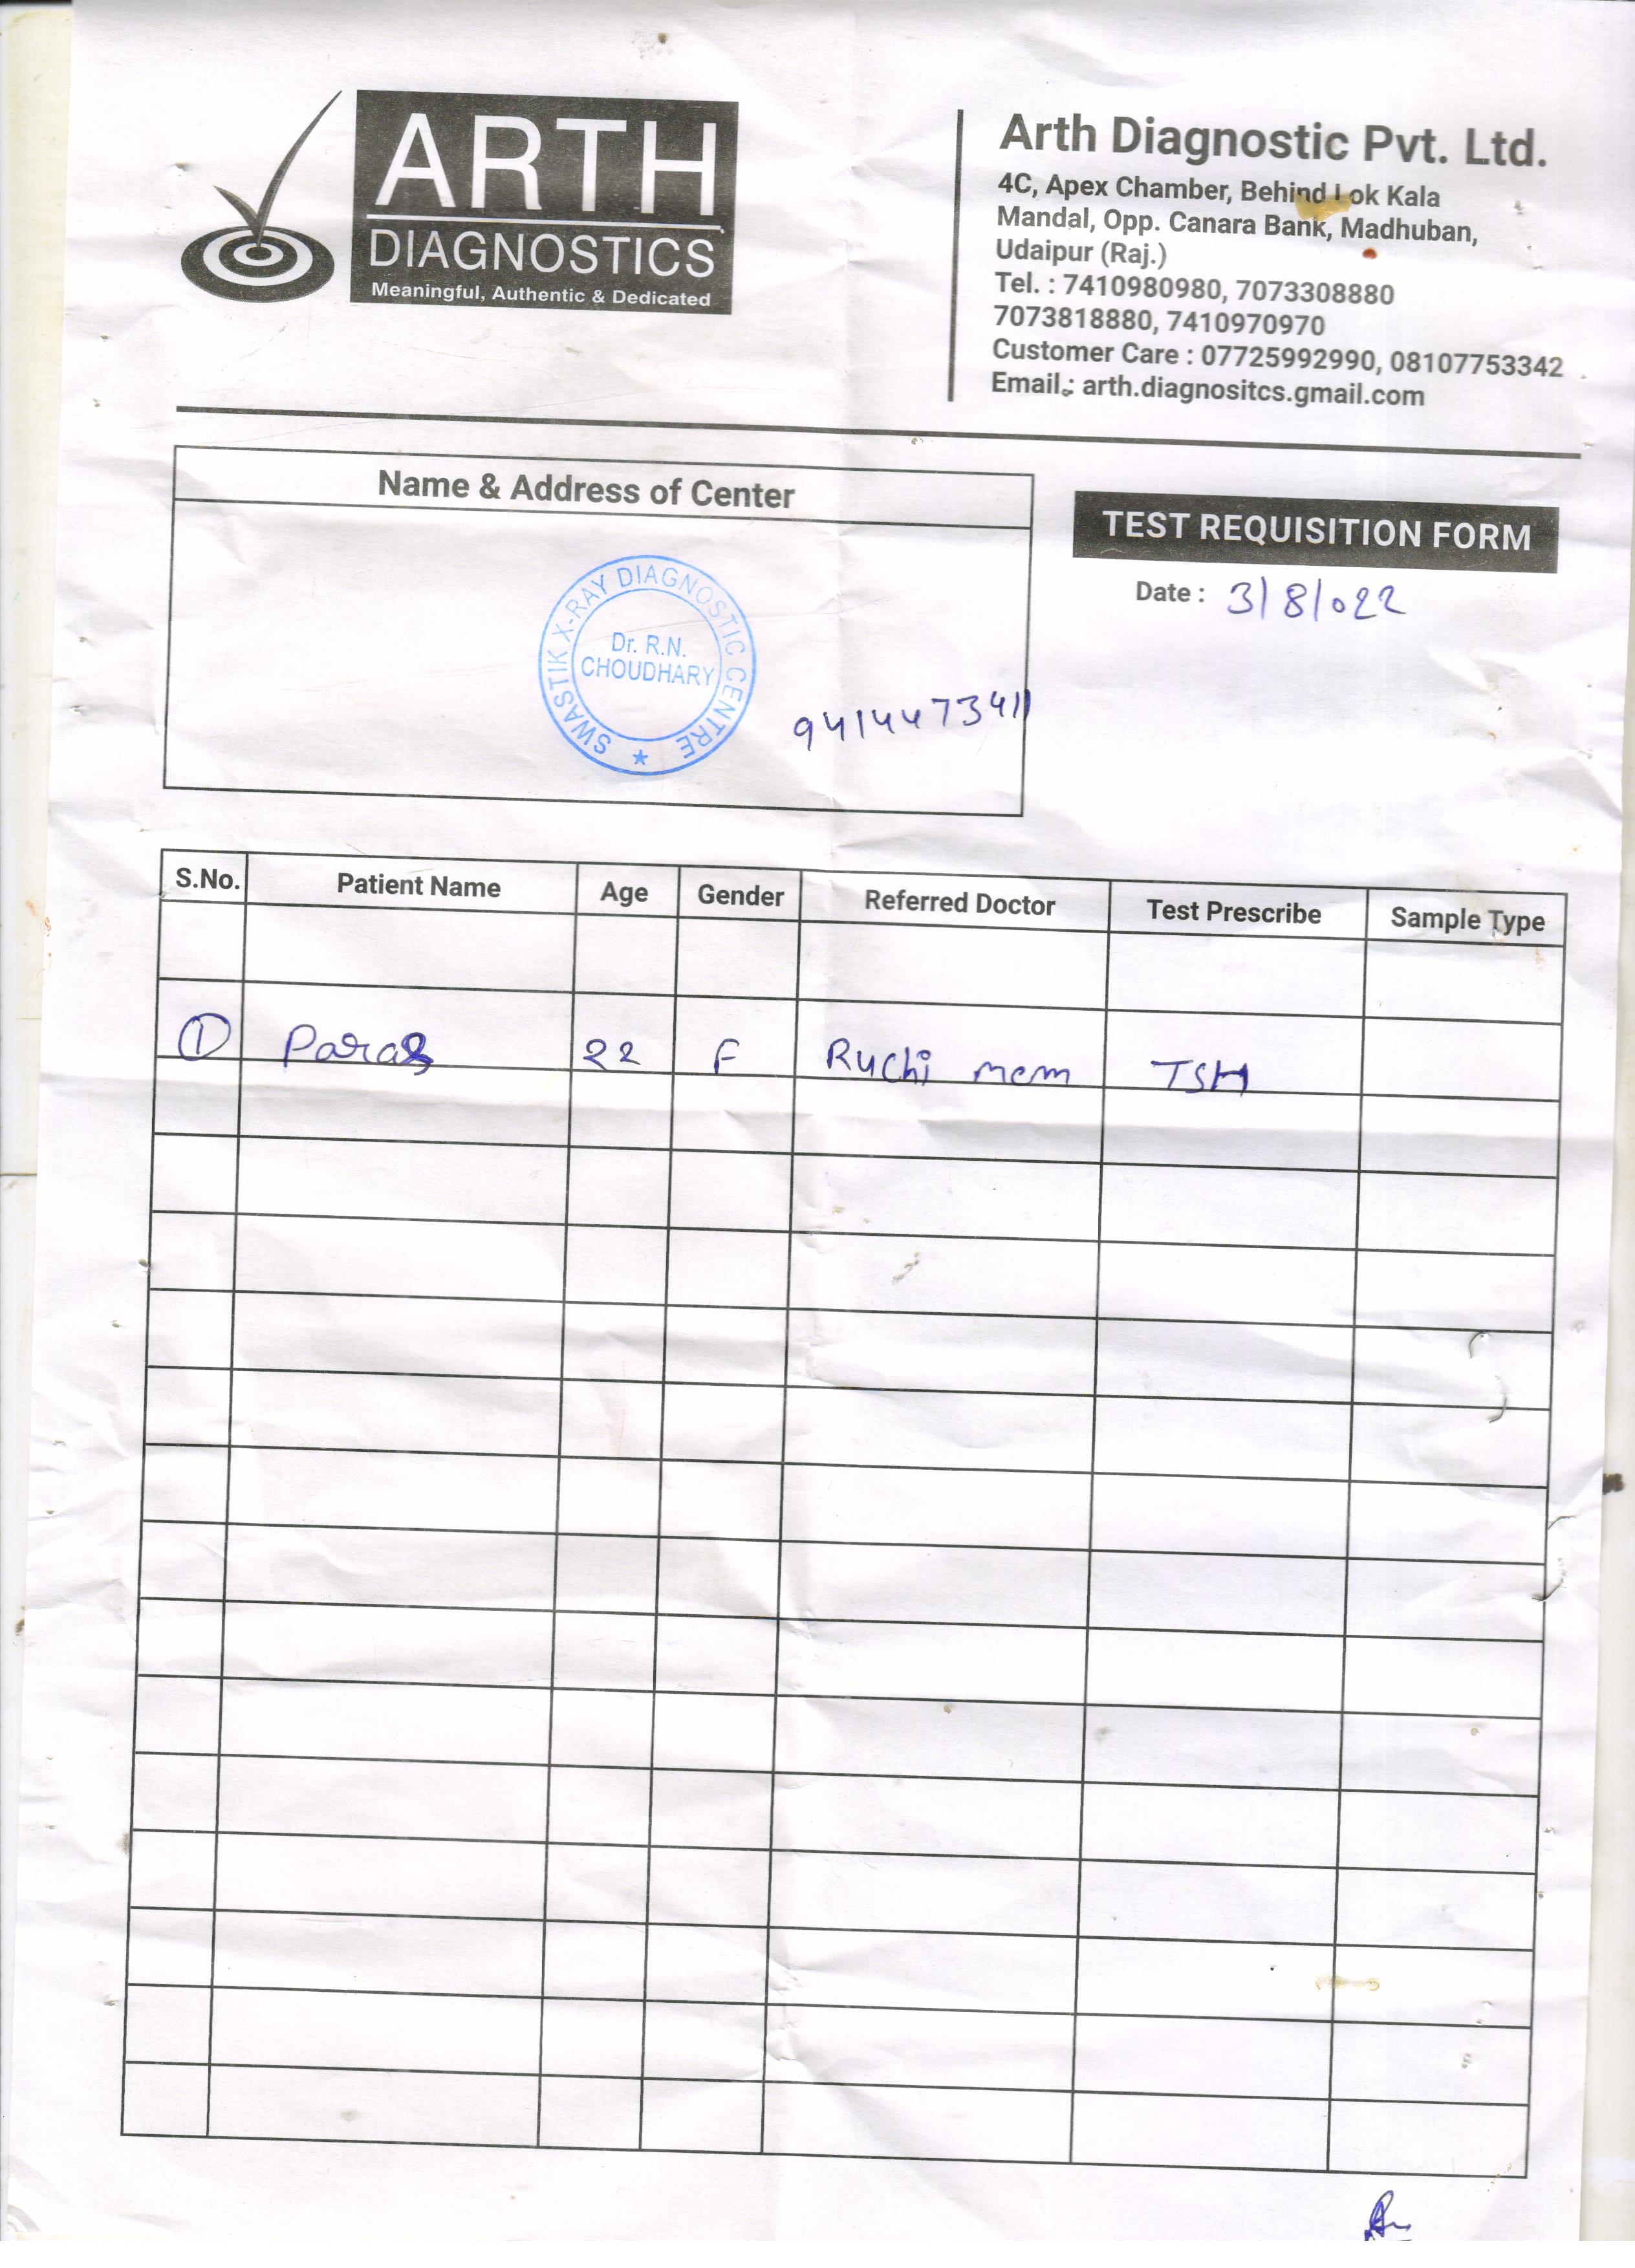 ARTH
DIAGNOSTICS
Meaningful, Authentic & Dedicated
Arth Diagnostic Pvt. Ltd.
4C, Apex Chamber, Behind Lok Kala
Mandal, Opp. Canara Bank, Madhuban,
Udaipur (Raj.)
Tel. : 7410980980, 7073308880
7073818880, 7410970970
Customer Care : 07725992990, 08107753342
Email.: arth.diagnositcs.gmail.com
Name & Address of Center
TEST REQUISITION FORM
Date : 3/8/022
SWASTIK X-RAY DIAGNOSTIC CENTRE
Dr. R.N.
CHOUDHARY
9414473411
S.No. Patient Name Age Gender Referred Doctor Test Prescribe Sample Type
1 Paras 22 F Ruchi mem TSH